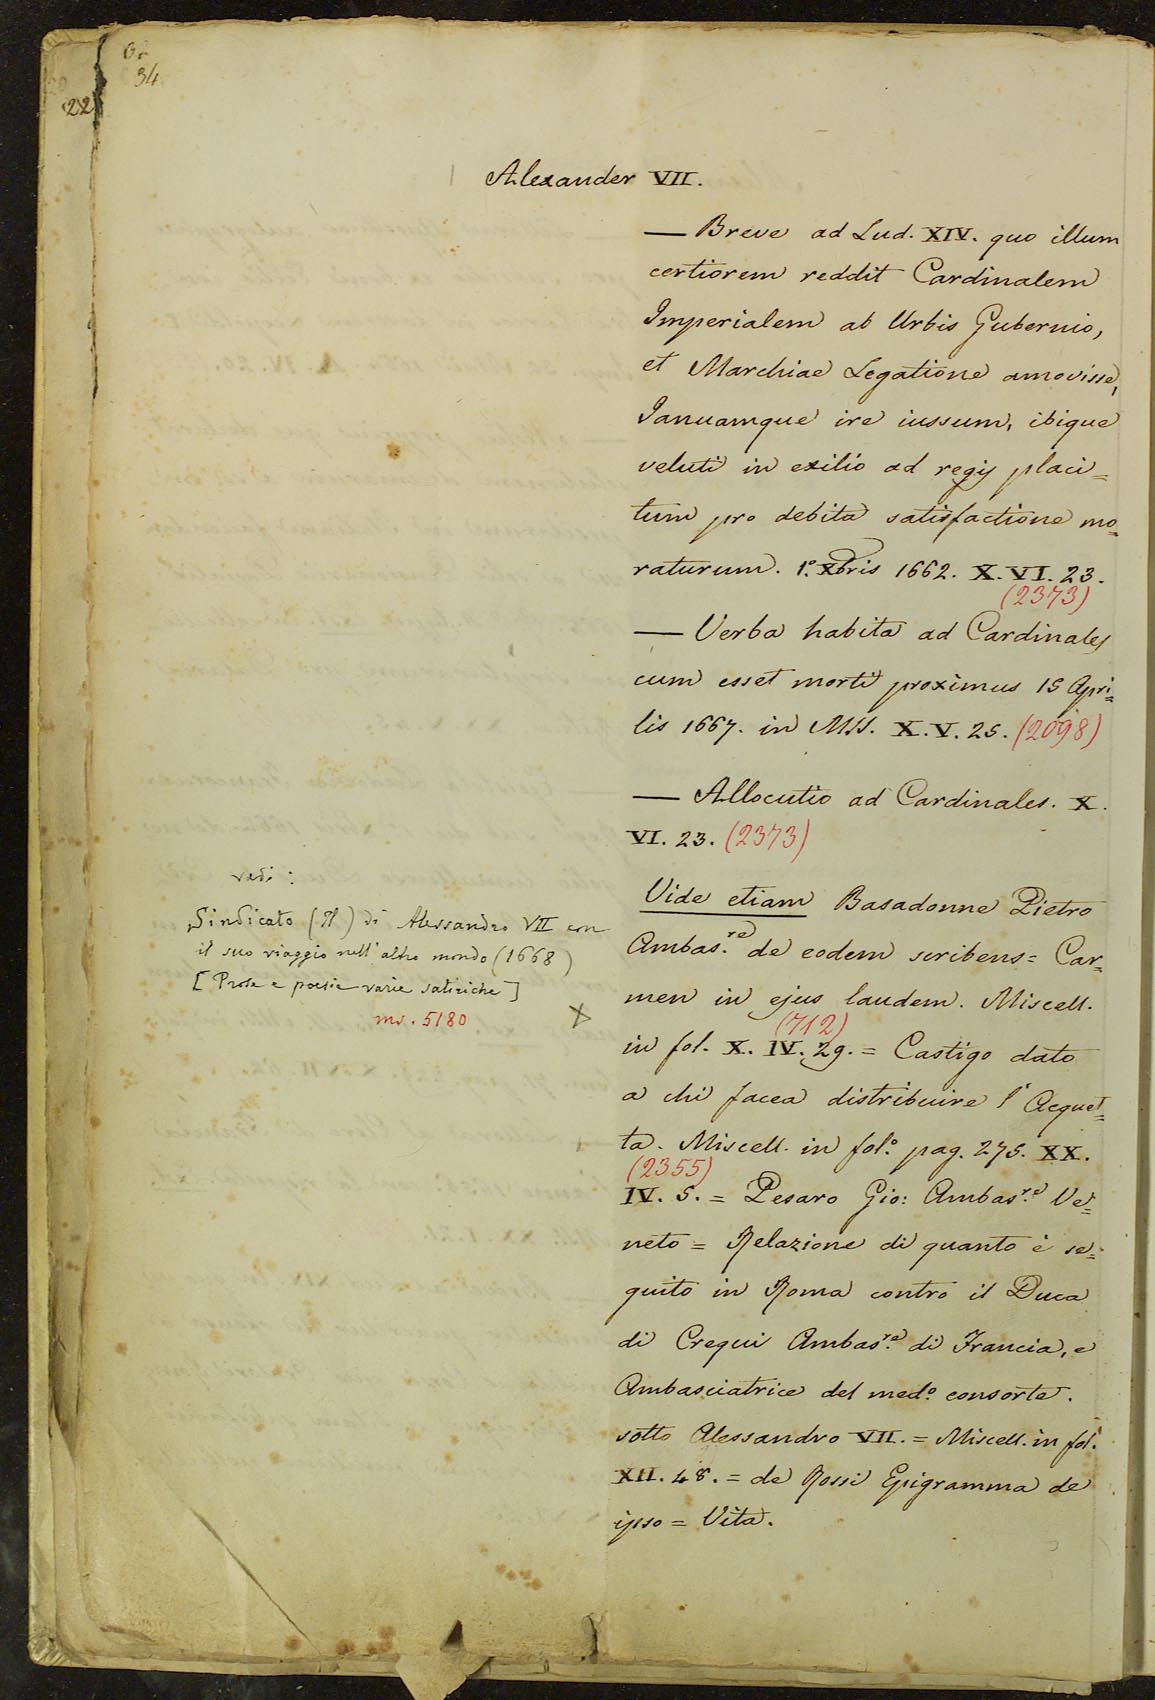 34
22
Alexander VII.
— Breve ad Lud. XIV. quo illum
certiorem reddit Cardinalem
Imperialem ab Urbis Gubernio,
et Marchiae Legatione amovisse,
Januamque ire iussum, ibique
veluti in exilio ad regij placi=
tum pro debita satisfactione mo=
raturum. 1.º Xbris 1662. X. VI. 23.
(2373)
— Verba habita ad Cardinales
cum esset morti proximus 15 Apri=
lis 1667. in MSS. X. V. 25. (2098)
— Allocutio ad Cardinales. X.
VI. 23. (2373)
Vide etiam Basadonne Pietro
Ambas.re de eodem scribens = Car=
men in ejus laudem. Miscell.
(712)
in fol. X. IV. 29. = Castigo dato
a chi facea distribuire l'Acquet=
ta. Miscell. in fol.º pag. 275. XX.
(2355)
IV. 5. = Pesaro Gio: Ambas.re Ve=
neto = Relazione di quanto è se=
guito in Roma contro il Duca
di Crequi Ambas.re di Francia, e
Ambasciatrice del med.º consorte.
sotto Alessandro VII. = Miscell. in fol.
XII. 48. = de Rossi Epigramma de
ipso = Vita.
vedi:
Sindicato (Il) di Alessandro VII con
il suo viaggio nell'altro mondo (1668)
[Prose e poesie varie satiriche]
ms. 5180